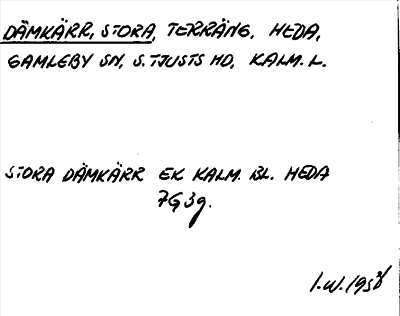 DÄMKÄRR, STORA, TERRÄNG, HEDA,
GAMLEBY SN, S. TJUSTS HD, KALM. L.
STORA DÄMKÄRR EK KALM. BL. HEDA
7G3g.
I.W.